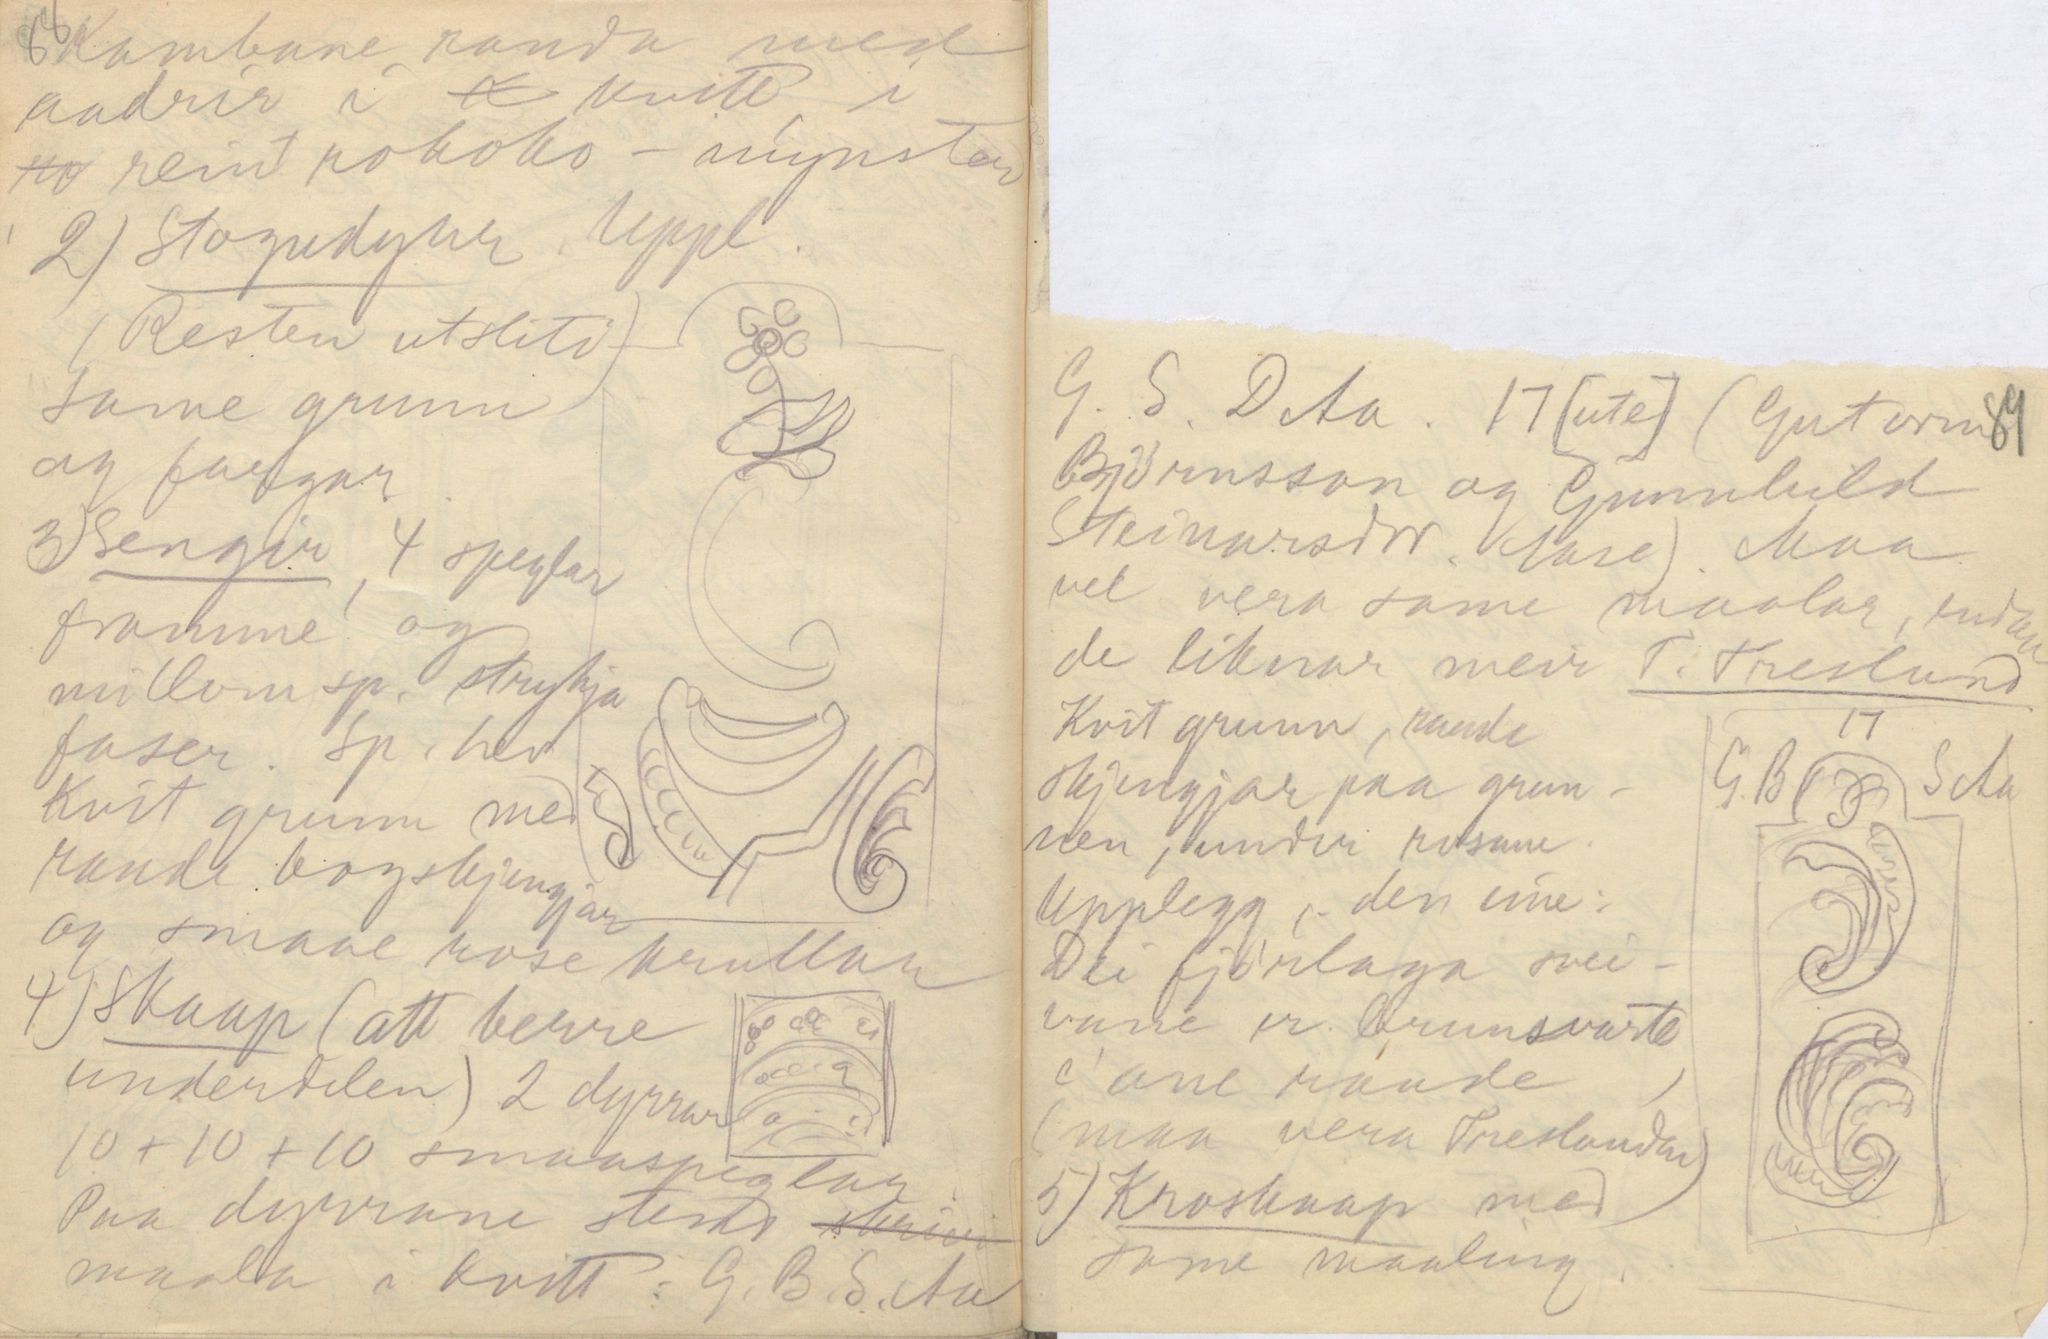 88
Kambane raude med
andrir i kvitt, i
reint rokoko - mynster
2) Stogudyrer. Uppl.
(Resten utsliti)
same grunn
og fargar.
3) Sengir, 4 speglar
framme og
millom sp. strykja
faser. Sp. hev
Kvit grunn med
raude bogskjengjar
og smaae rosekrullar
4) Skaap (att berre
underdelen) 2 dyrrar
10 + 10 + 10 smaaspeglar.
Paa dyrrane stend skrivi
maala i kvitt: G. B. S. Aa
89
G. S. D. Aa. 17 [ute] (Gutorm
Björnsson og Gunnhild
Steinarsdtr. Aase). Maa
vel vera same maalar, endaa
de liknar meir T. Treslund
Kvit grunn, raude
skjengjar paa grun-
nen, under rosane.
Upplegg, den eine:
Dei fjörlaga svei-
vane er brunsvarte
ane raude,
(maa vera Treslundar)
5) Kroskaap med
same maaling.
17
G. B. S Aa